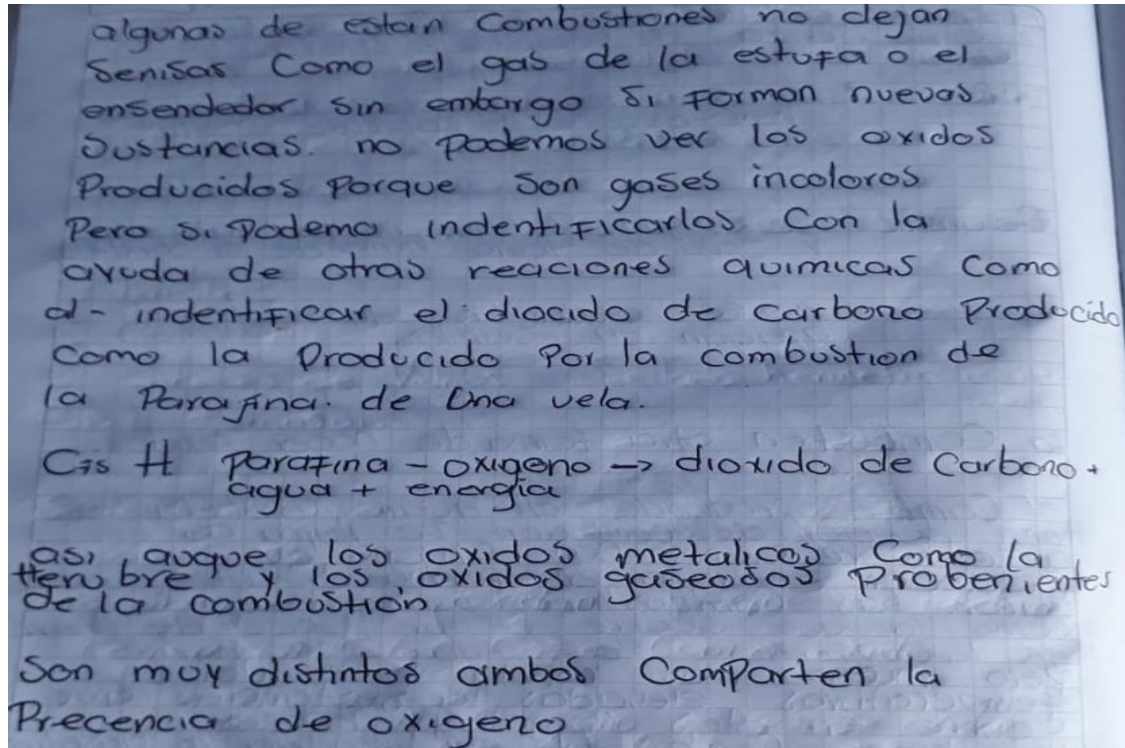 algunas de estan Combustiones no dejan
Senisas Como el gas de la estufa o el
ensendedor sin embargo si Forman nuevas
Sustancias. no podemos ver los oxidos
Producidos Porque Son gases incoloros
Pero si Podemo indentificarlos Con la
ayuda de otras reaciones quimicas Como
al- indentificar el diocido de Carbono Producido
Como la Producido Por la combustion de
la Parafina. de Una vela.
H Parafina - oxigeno -> dioxido de Carbono +
agua + energia
asi, auque los oxidos metalicos Como la
Herubre y los oxidos gaseosos Probenientes
de la combustión
Son muy distintos ambos Comparten la
Precencia de oxigeno